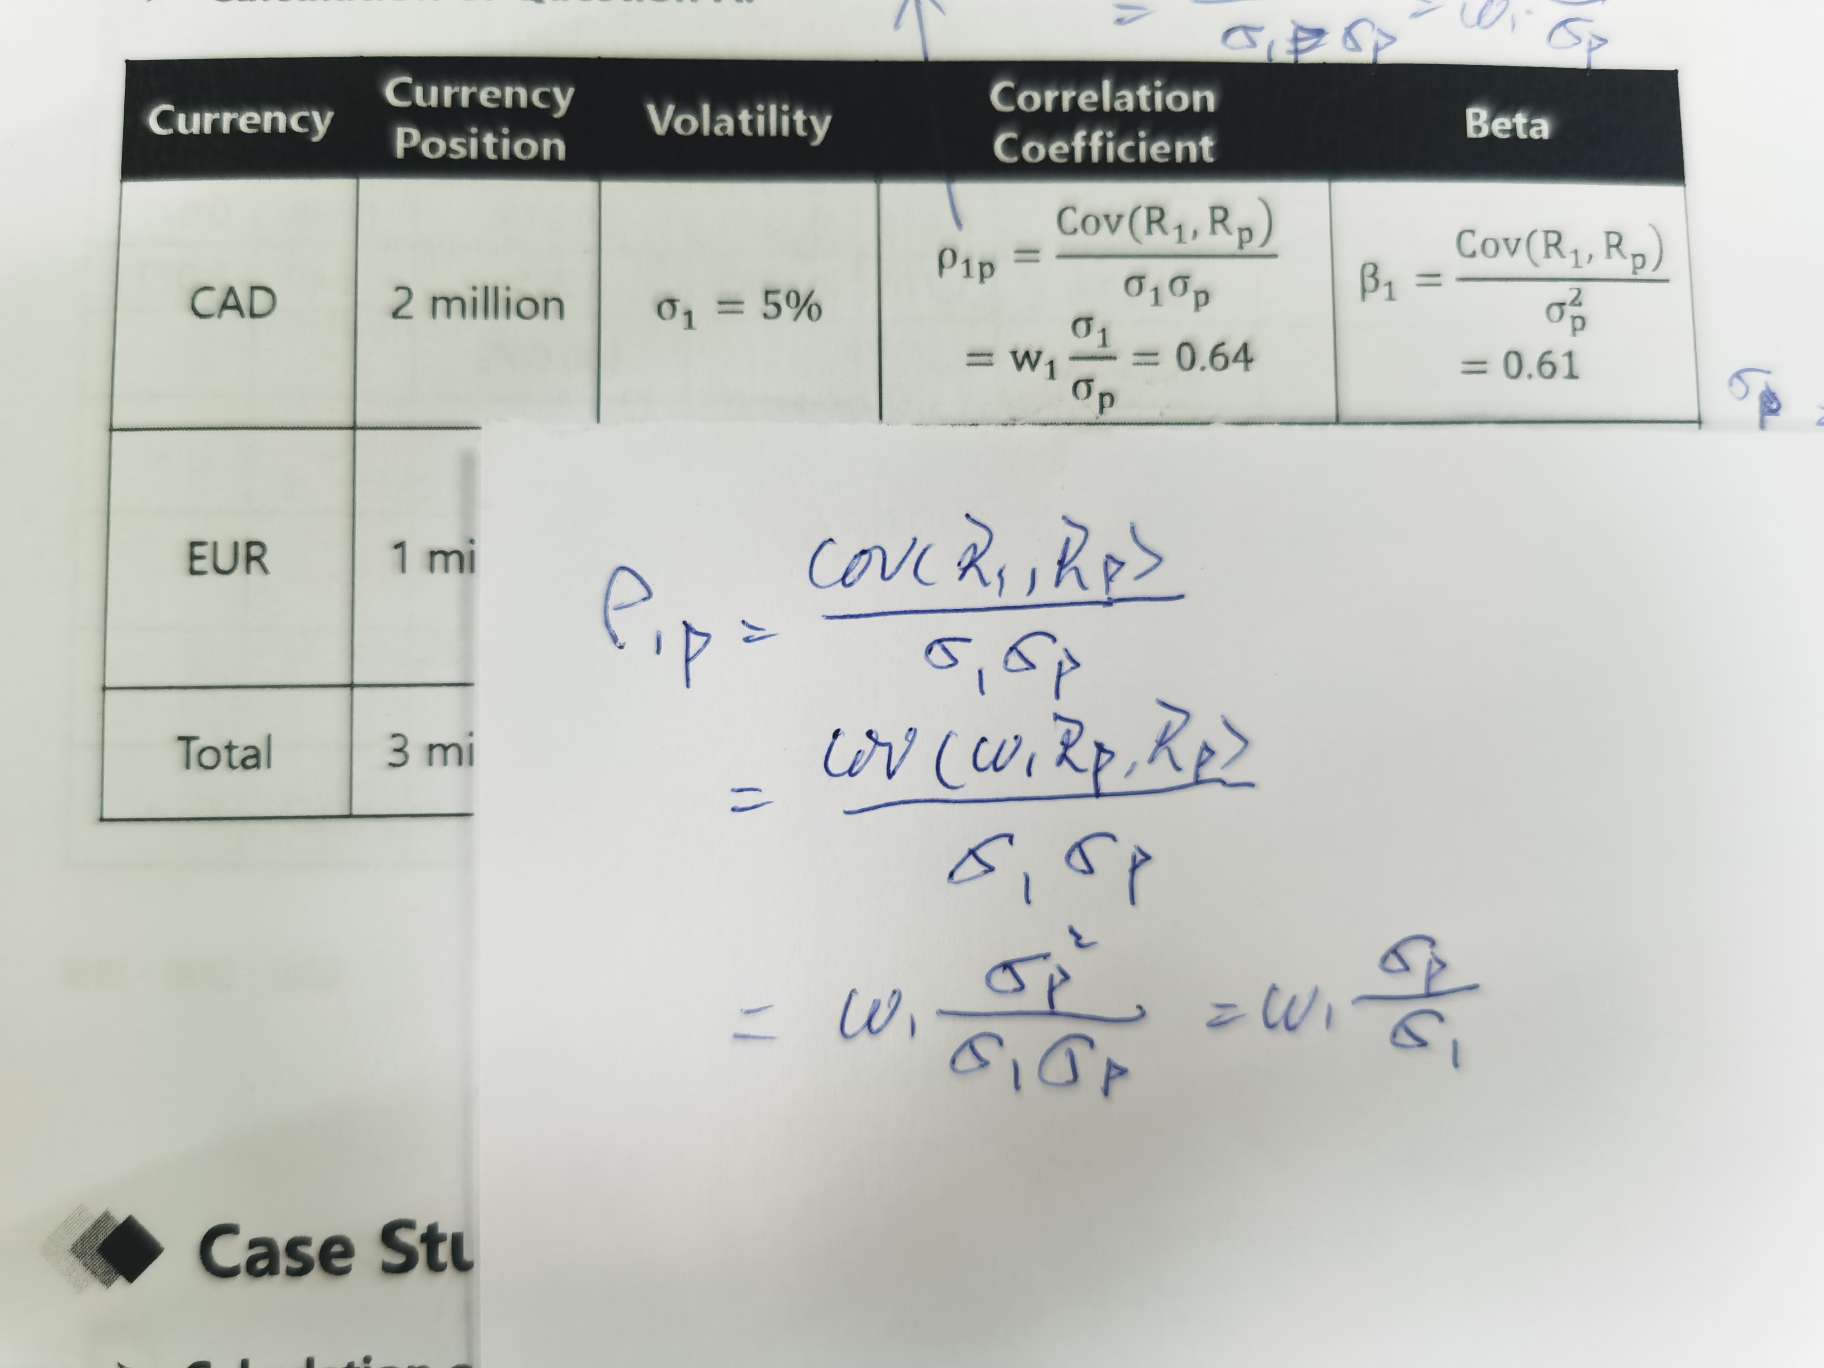 = σ₁ σp = ω₁ σp
Currency | Currency Position | Volatility | Correlation Coefficient | Beta
CAD | 2 million | σ₁ = 5% | ρ₁p = Cov(R₁, Rp) / σ₁σp = w₁ σ₁/σp = 0.64 | β₁ = Cov(R₁, Rp) / σp² = 0.61
σp
EUR | 1 mi
Total | 3 mi
ρ₁p = cov(R̃₁, R̃p) / σ₁σp
= cov(ω₁R̃p, R̃p) / σ₁ σp
= ω₁ σp² / σ₁σp = ω₁ σp/σ₁
Case Stu